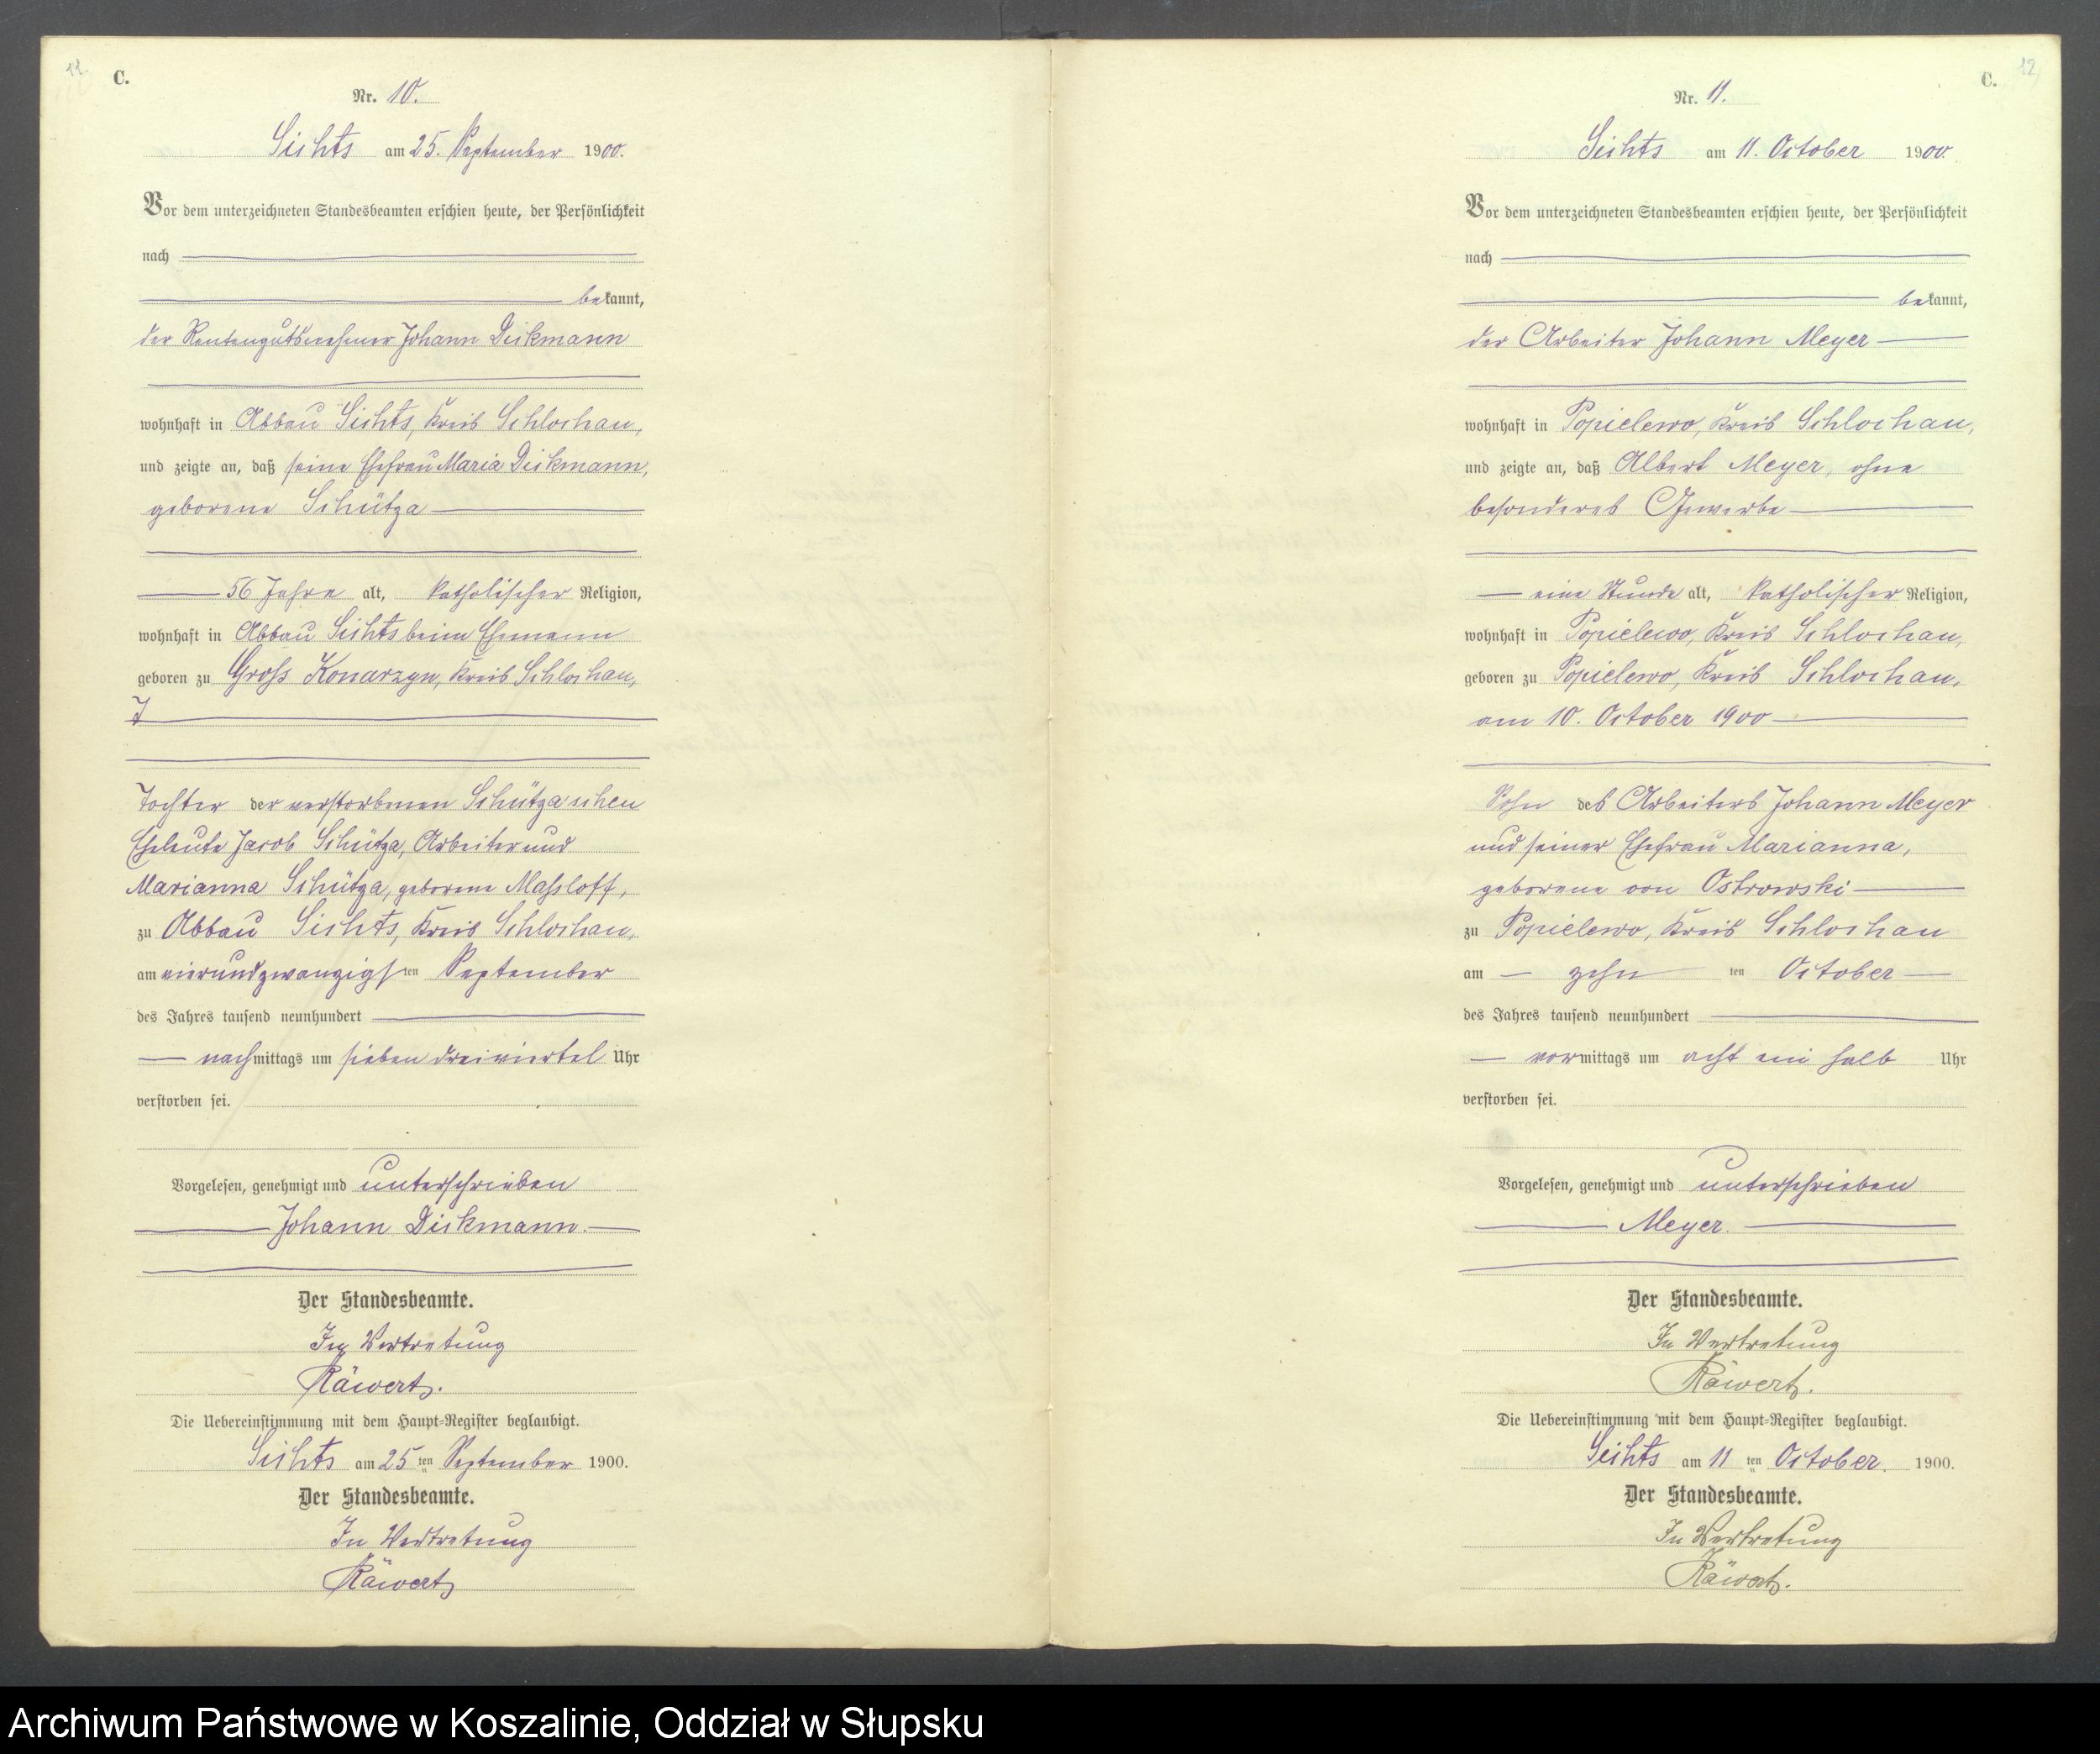 11
C.
Nr. 10.
Sichts am 25. September 1900.
Vor dem unterzeichneten Standesbeamten erschien heute, der Persönlichkeit
nach
bekannt,
der Rentengutsnehmer Johann Dickmann
wohnhaft in Abbau Sichts, Kreis Schlochau,
und zeigte an, daß seine Ehefrau Maria Dickmann,
geborene Schütza
56 Jahre alt, katholischer Religion,
wohnhaft in Abbau Sichts beim Ehemann
geboren zu Gross Konarzyn, Kreis Schlochau,
Tochter der verstorbenen Schütza'schen
Eheleute Jacob Schütza, Arbeiter und
Marianna Schütza, geborene Massloff,
zu Abbau Sichts, Kreis Schlochau,
am vierundzwanzigsten September
des Jahres tausend neunhundert
nachmittags um sieben dreiviertel Uhr
verstorben sei.
Vorgelesen, genehmigt und unterschrieben
Johann Dickmann.
Der Standesbeamte.
In Vertretung
Räwert.
Die Uebereinstimmung mit dem Haupt-Register beglaubigt.
Sichts am 25 ten September 1900.
Der Standesbeamte.
In Vertretung
Räwert
12
C.
Nr. 11.
Sichts am 11. October 1900.
Vor dem unterzeichneten Standesbeamten erschien heute, der Persönlichkeit
nach
bekannt,
der Arbeiter Johann Meyer
wohnhaft in Popielewo, Kreis Schlochau,
und zeigte an, daß Albert Meyer, ohne
besonderes Gewerbe
eine Stunde alt, katholischer Religion,
wohnhaft in Popielewo, Kreis Schlochau,
geboren zu Popielewo, Kreis Schlochau,
am 10. October 1900
Sohn des Arbeiters Johann Meyer
und seiner Ehefrau Marianna,
geborene von Ostrowski
zu Popielewo, Kreis Schlochau
am zehn ten October
des Jahres tausend neunhundert
vormittags um acht ein halb Uhr
verstorben sei.
Vorgelesen, genehmigt und unterschrieben
Meyer.
Der Standesbeamte.
In Vertretung
Räwert.
Die Uebereinstimmung mit dem Haupt-Register beglaubigt.
Sichts am 11 ten October. 1900.
Der Standesbeamte.
In Vertretung
Räwert.
Archiwum Państwowe w Koszalinie, Oddział w Słupsku